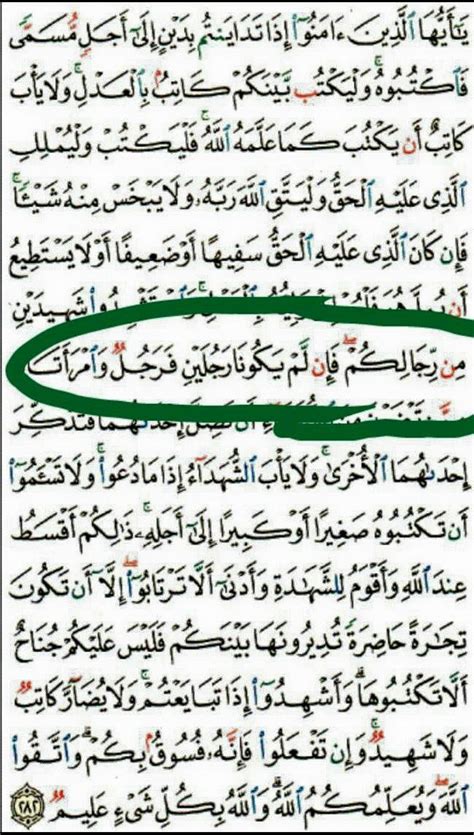 يَٰٓأَيُّهَا ٱلَّذِينَ ءَامَنُوٓا۟ إِذَا تَدَايَنتُم بِدَيْنٍ إِلَىٰٓ أَجَلٍ مُّسَمًّى
فَٱكْتُبُوهُ ۚ وَلْيَكْتُب بَّيْنَكُمْ كَاتِبٌۢ بِٱلْعَدْلِ ۚ وَلَا يَأْبَ
كَاتِبٌ أَن يَكْتُبَ كَمَا عَلَّمَهُ ٱللَّهُ ۚ فَلْيَكْتُبْ وَلْيُمْلِلِ
ٱلَّذِى عَلَيْهِ ٱلْحَقُّ وَلْيَتَّقِ ٱللَّهَ رَبَّهُۥ وَلَا يَبْخَسْ مِنْهُ شَيْـًٔا ۚ
فَإِن كَانَ ٱلَّذِى عَلَيْهِ ٱلْحَقُّ سَفِيهًا أَوْ ضَعِيفًا أَوْ لَا يَسْتَطِيعُ
أَن شَهِيدَيْنِ
مِن رِّجَالِكُمْ ۖ فَإِن لَّمْ يَكُونَا رَجُلَيْنِ فَرَجُلٌ وَٱمْرَأَتَا
أَن تَضِلَّ إِحْدَىٰهُمَا فَتُذَكِّرَ
إِحْدَىٰهُمَا ٱلْأُخْرَىٰ ۚ وَلَا يَأْبَ ٱلشُّهَدَآءُ إِذَا مَا دُعُوا۟ ۚ وَلَا تَسْـَٔمُوٓا۟
أَن تَكْتُبُوهُ صَغِيرًا أَوْ كَبِيرًا إِلَىٰٓ أَجَلِهِۦ ۚ ذَٰلِكُمْ أَقْسَطُ
عِندَ ٱللَّهِ وَأَقْوَمُ لِلشَّهَٰدَةِ وَأَدْنَىٰٓ أَلَّا تَرْتَابُوٓا۟ ۖ إِلَّآ أَن تَكُونَ
تِجَٰرَةً حَاضِرَةً تُدِيرُونَهَا بَيْنَكُمْ فَلَيْسَ عَلَيْكُمْ جُنَاحٌ
أَلَّا تَكْتُبُوهَا ۗ وَأَشْهِدُوٓا۟ إِذَا تَبَايَعْتُمْ ۚ وَلَا يُضَآرَّ كَاتِبٌ
وَلَا شَهِيدٌ ۚ وَإِن تَفْعَلُوا۟ فَإِنَّهُۥ فُسُوقٌۢ بِكُمْ ۗ وَٱتَّقُوا۟
ٱللَّهَ ۖ وَيُعَلِّمُكُمُ ٱللَّهُ ۗ وَٱللَّهُ بِكُلِّ شَىْءٍ عَلِيمٌ ٢٨٢